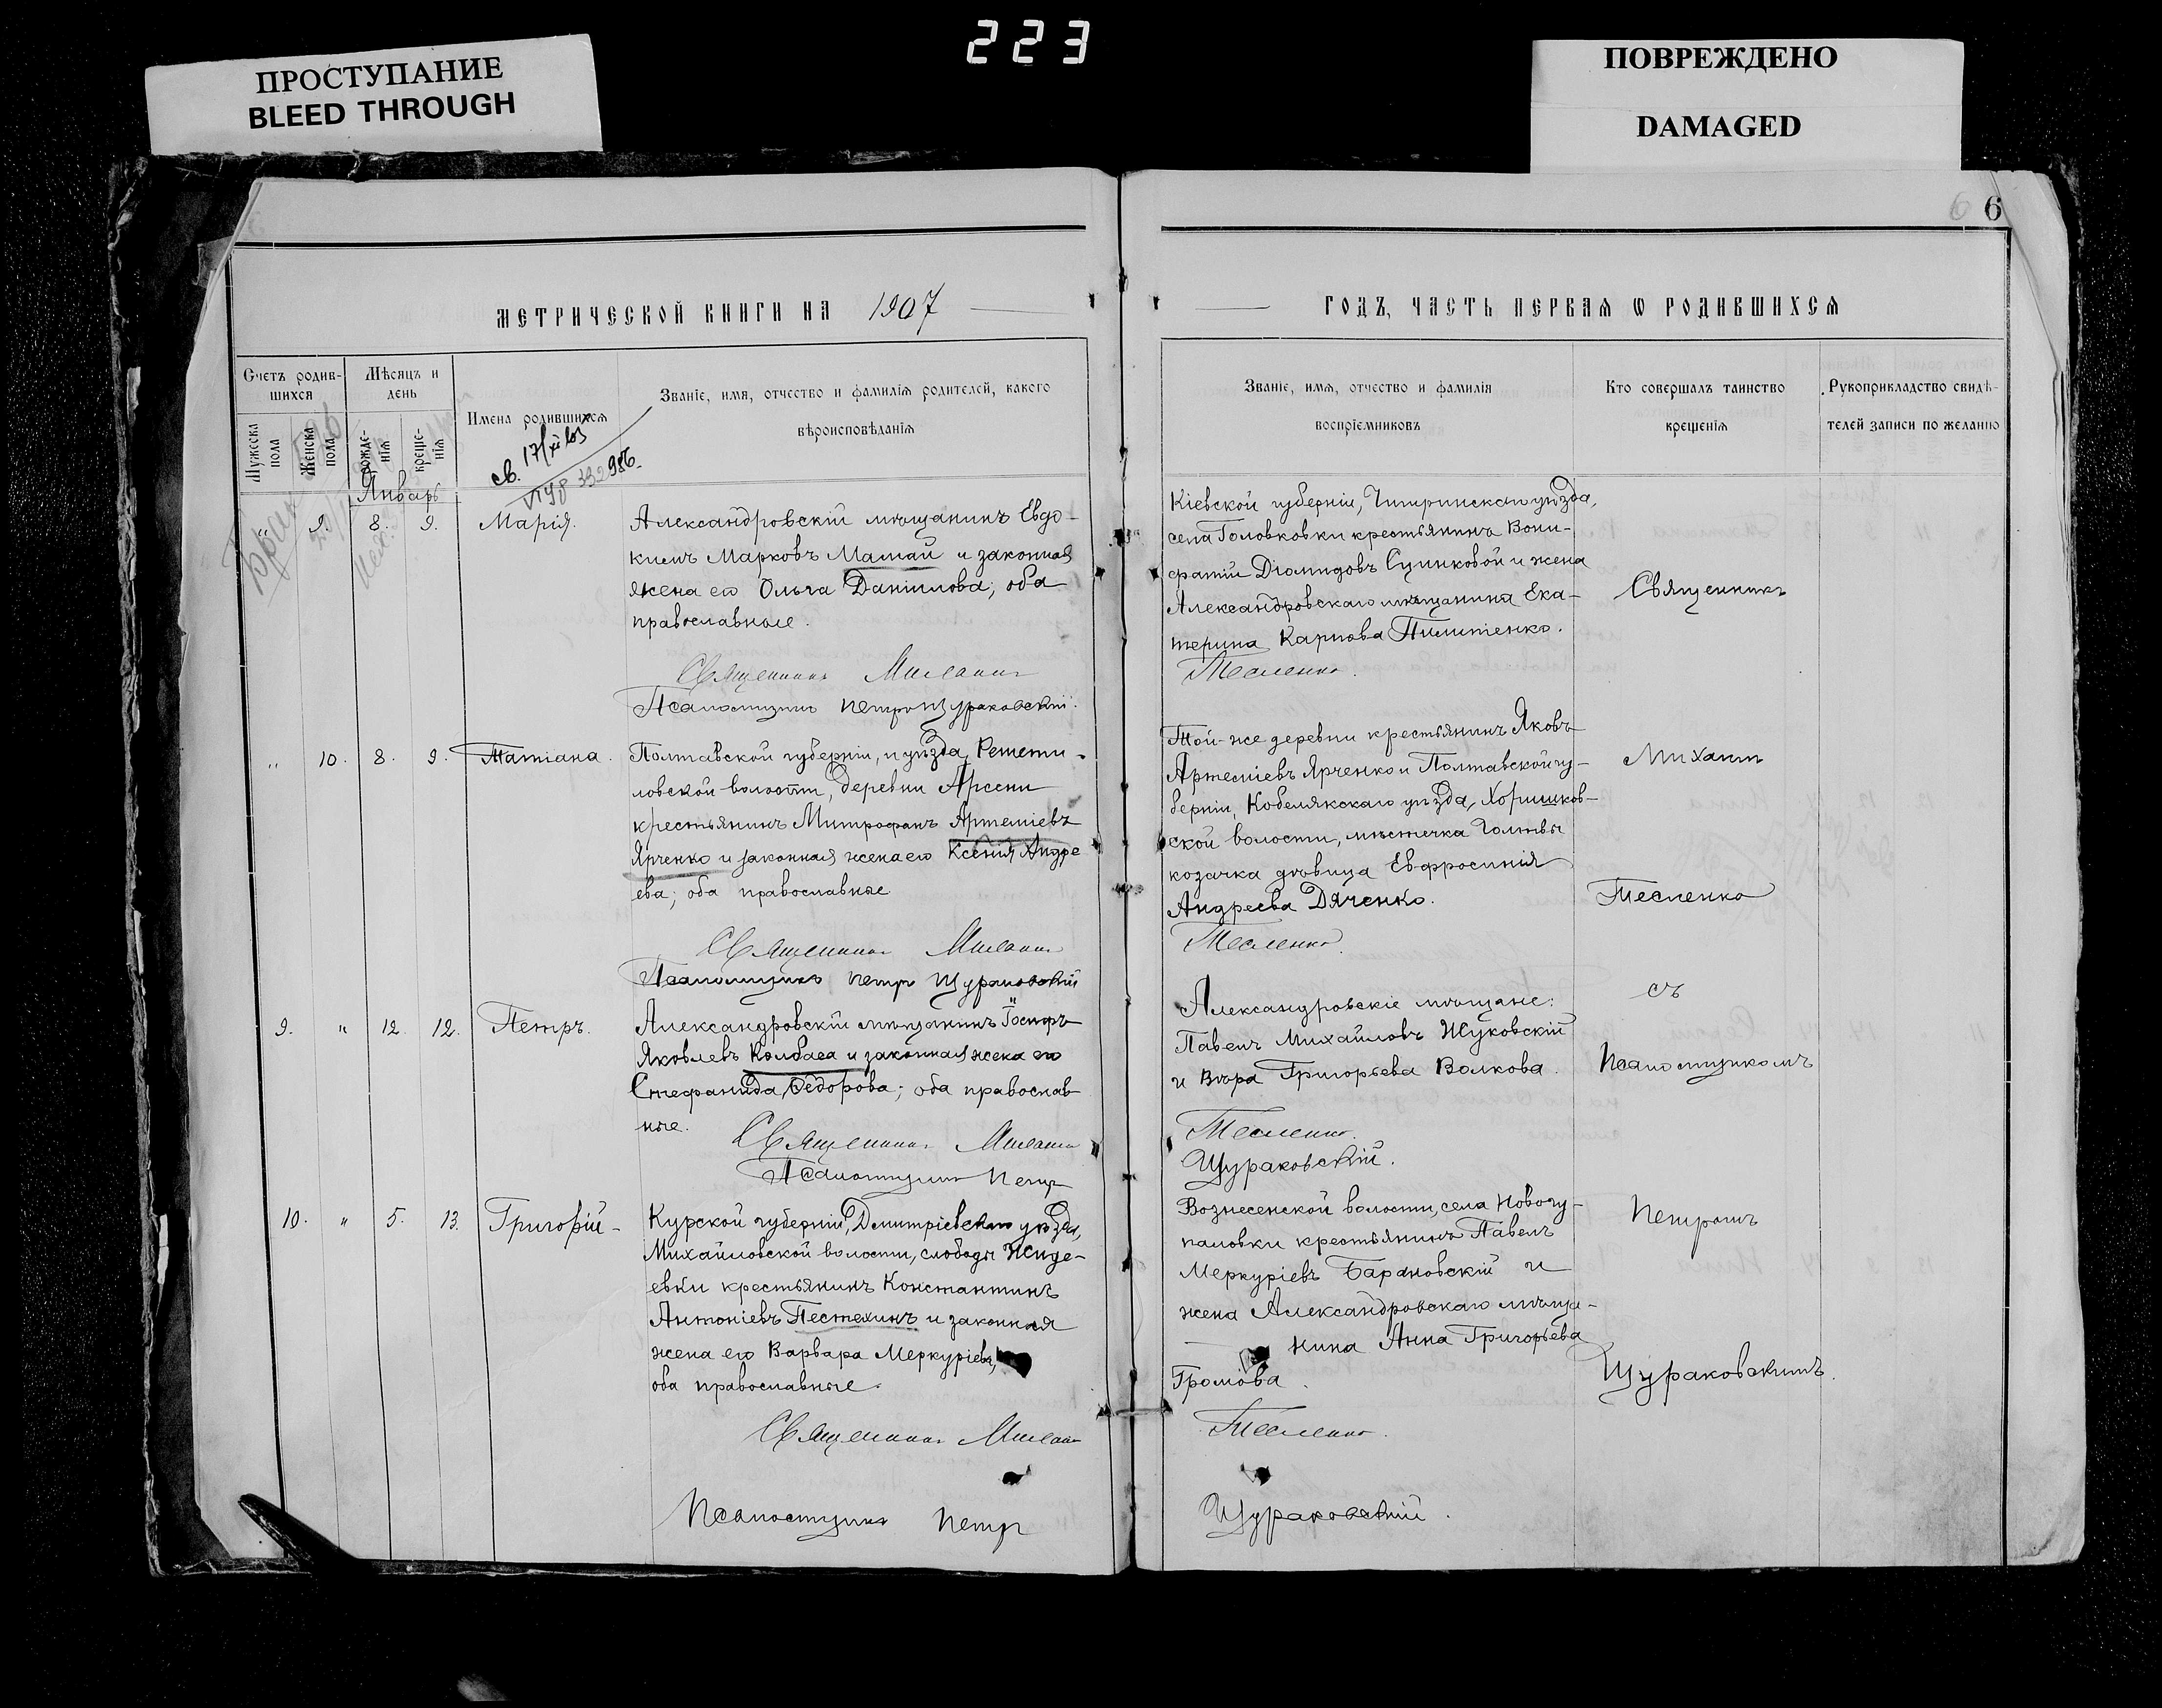 223
ПРОСТУПАНИЕ
BLEED THROUGH
ПОВРЕЖДЕНО
DAMAGED
6 6
МЕТРИЧЕСКОЙ КНИГИ НА 1907
Счетъ родив-
шихся
Мѣсяцъ и
день
Мужеска
пола
Женска
пола
рожде-
нія
креще-
нія
Имена родившихся
Званіе, имя, отчество и фамилія родителей, какого
вѣроисповѣданія
св.
Январь
" 9. 8. 9. Марія.
Александровскій мѣщанинъ Евдо-
кимъ Марковъ Мамай и законная
жена его Ольга Даніилова; оба
православные.
Священникъ Михаилъ
Псаломщикъ Петръ Щураковскій.
" 10. 8. 9. Татіана.
Полтавской губерніи, и уѣзда, Решети-
ловской волости, деревни Арсени
крестьянинъ Митрофанъ Артеміевъ
Ярченко и законная жена его Ксенія Андре
ева; оба православные
Священникъ Михаилъ
Псаломщикъ Петръ Щураковскій
9. " 12. 12. Петръ.
Александровскій мѣщанинъ Іосифъ
Яковлевъ Колбаса и законная жена его
Стефанида Ѳедорова; оба православ
ные.
Священникъ Михаилъ
Псаломщикъ Петръ
10. " 5. 13. Григорій
Курской губерніи, Дмитріевскаго уѣзда,
Михайловской волости, слободы Жиде-
евки крестьянинъ Константинъ
Антоніевъ Пестехинъ и законная
жена его Варвара Меркуріева,
оба православные.
Священникъ Михаилъ
Псаломщикъ Петръ
ГОДЪ, ЧАСТЬ ПЕРВАЯ Ѡ РОДИВШИХСЯ
Званіе, имя, отчество и фамилія
воспріемниковъ
Кто совершалъ таинство
крещенія
Рукоприкладство свидѣ-
телей записи по желанію
Кіевской губерніи, Чигринскаго уѣзда,
села Головковки крестьянинъ Вони-
фатій Діомидовъ Сушковой и жена
Александровскаго мѣщанина Ека-
терина Карпова Пилипенко.
Тесленко.
Той-же деревни крестьянинъ Яковъ
Артеміевъ Ярченко и Полтавской гу-
берніи, Кобелякскаго уѣзда, Хоришков-
ской волости, мѣстечка Голтвы
козачка дѣвица Евфросинія
Андреева Дяченко.
Тесленко.
Александровскіе мѣщане:
Павелъ Михайловъ Жуковскій
и Вѣра Григорьева Волкова.
Тесленко.
Щураковскій.
Вознесенской волости, села Новогу-
паловки крестьянинъ Павелъ
Меркуріевъ Барановскій и
жена Александровскаго мѣща-
нина Анна Григорьева
Громова.
Тесленко.
Щураковскій.
Священникъ
Михаилъ
Тесленко
съ
Псаломщикомъ
Петромъ
Щураковскимъ.